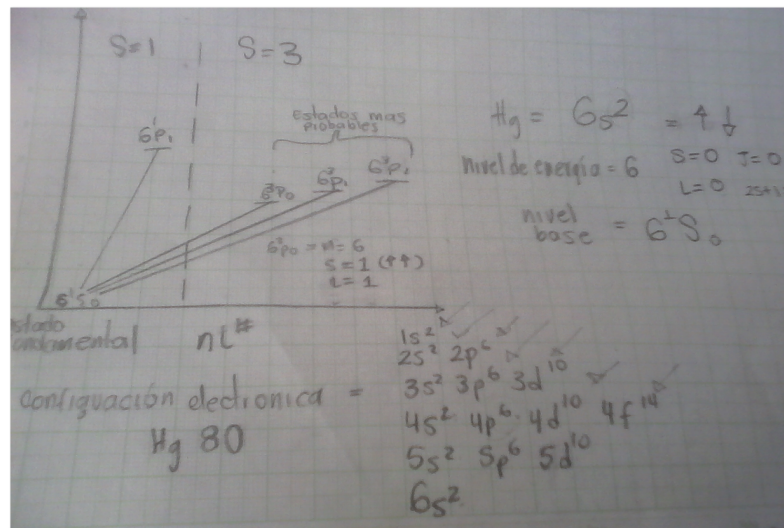 S=1
S=3
Estados mas
probables
6¹P₁
6³P₀
6³P₁
6³P₁
6³P₀ = n=6
S=1 (↑↑)
L=1
6¹S₀
estado
fundamental
nL#
Hg = 6s² = ↑↓
nivel de energia = 6
S=0 J=0
L=0 2S+1
nivel
base = 6¹S₀
configuación electronica =
Hg 80
1s²
2s² 2p⁶
3s² 3p⁶ 3d¹⁰
4s² 4p⁶ 4d¹⁰ 4f¹⁴
5s² 5p⁶ 5d¹⁰
6s²